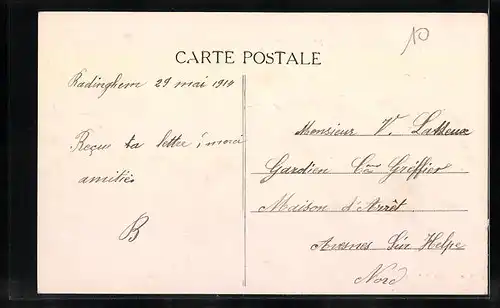 10
CARTE POSTALE
Radinghem 29 mai 1914
Reçue ta letter, merci
amitiés
B
Monsieur V. Latteux
Gardien Cis Greffier
Maison d'Arrêt
Avesnes Sur Helpe
Nord